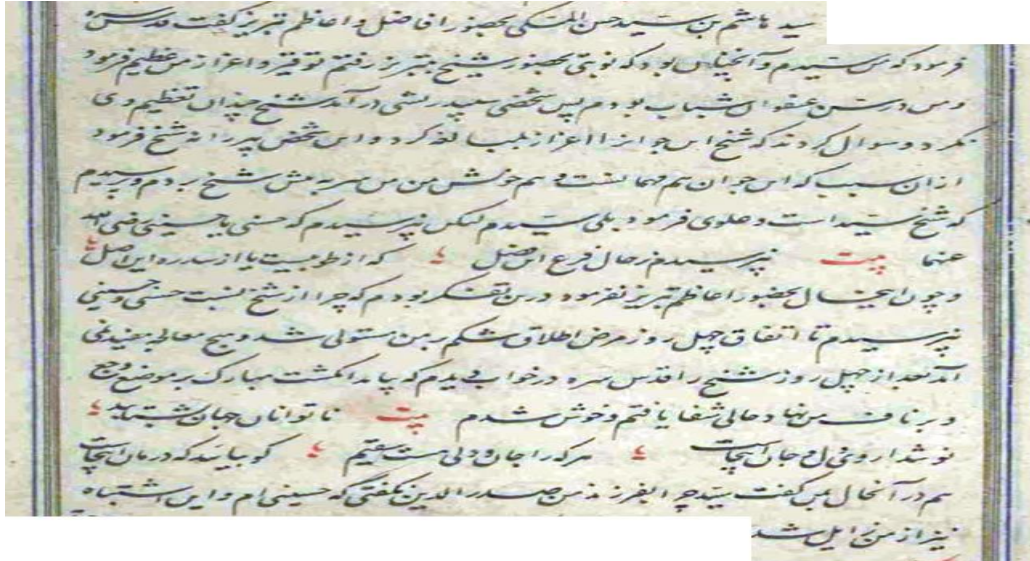 سید هاشم بن سید حسن المکی بحضور افاضل و اعاظم تبریز گفت قدس سره
فرمود که من سیدم و آنچنان بود که نوبتی بحضور شیخ به تبریز رفتم توقیر و اعزاز من عظیم فرمود
و من در سن عنفوان شباب بودم پس شخصی سپید ریشی در آمد شیخ چندان تعظیم وی
نکرد و سوال کردند که شیخ این جوانرا اعزاز بلیـا لغه کرد و این شخص پیر را نه شیخ فرمود
ازان سبب که این جوان هم مهمانست و هم خویش من من سر به پیش شیخ بردم و پرسیدم
که شیخ سید است و علوی فرمود بلی سیدم لیکن نپرسیدم که حسنی یا حسینی رضی الله
عنها بیت نپرسیدم ز حال فرع این فضل که از طوبیست یا از سدره این اصل
و چون اینحال بحضور اعاظم تبریز نفرموده در من تفکر بودم که چرا از شیخ نسبت حسنی و حسینی
نپرسیدم تا اتفاق چهل روز مرض اطلاق شکم بمن مستولی شد و هیچ معالجه مفید نمی
آمد بعد از چهل روز شیخ را قدس سره در خواب دیدم که بیامد انگشت مبارک بر موضع وجع
و بر ناف من نهاد حالی شفا یافتم و خوش شدم بیت ناتوانان جهان بشتابید
نوشداروی دل و جان اینجاست هر کرا جان و دلی هست سقیم گو بیایید که درمان اینجاست
هم در آنحال بمن گفت سید چرا بفرزند من صدرالدین نگفتی که حسینی ام و این اشتباه
نیز از من زایل شد